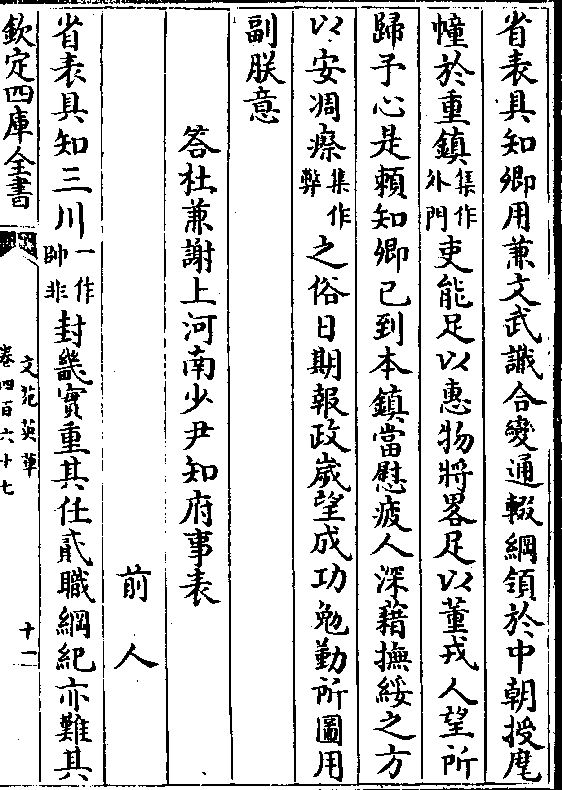 省表具知卿用兼文武識合變通輟綱領於中朝授麾
幢於重鎮集作外門吏能足以惠物將畧足以董戎人望所
歸予心是賴知卿已到本鎮當慰疲人深藉撫綏之方
以安凋瘵集作弊之俗日期報政嵗望成功勉勤所圖用
副朕意
答杜兼謝上河南少尹知府事表
前人
省表具知三川一作帥非封畿實重其任貳職綱紀亦難其
欽定四庫全書
文苑英華
卷四百六十七
十一